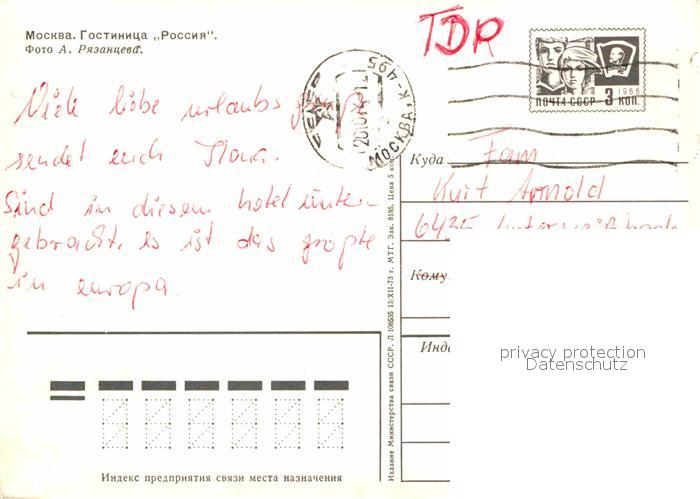 Москва. Гостиница „Россия".
Фото А. Рязанцева.
TDR
1966
ПОЧТА СССР 3 КОП.
МОСКВА, К-495
Viele liebe urlaubs
sendet euch
Sind in diesem hotel unter-
gebracht. es ist das größte
in europa.
Куда Fam
Kurt Arnold
6435
Кому
Издание Министерства связи СССР. Л 108535 13/XII-73 г. МТГ. Зак. 8185. Цена 5 коп.
privacy protection
Datenschutz
Индекс предприятия связи места назначения